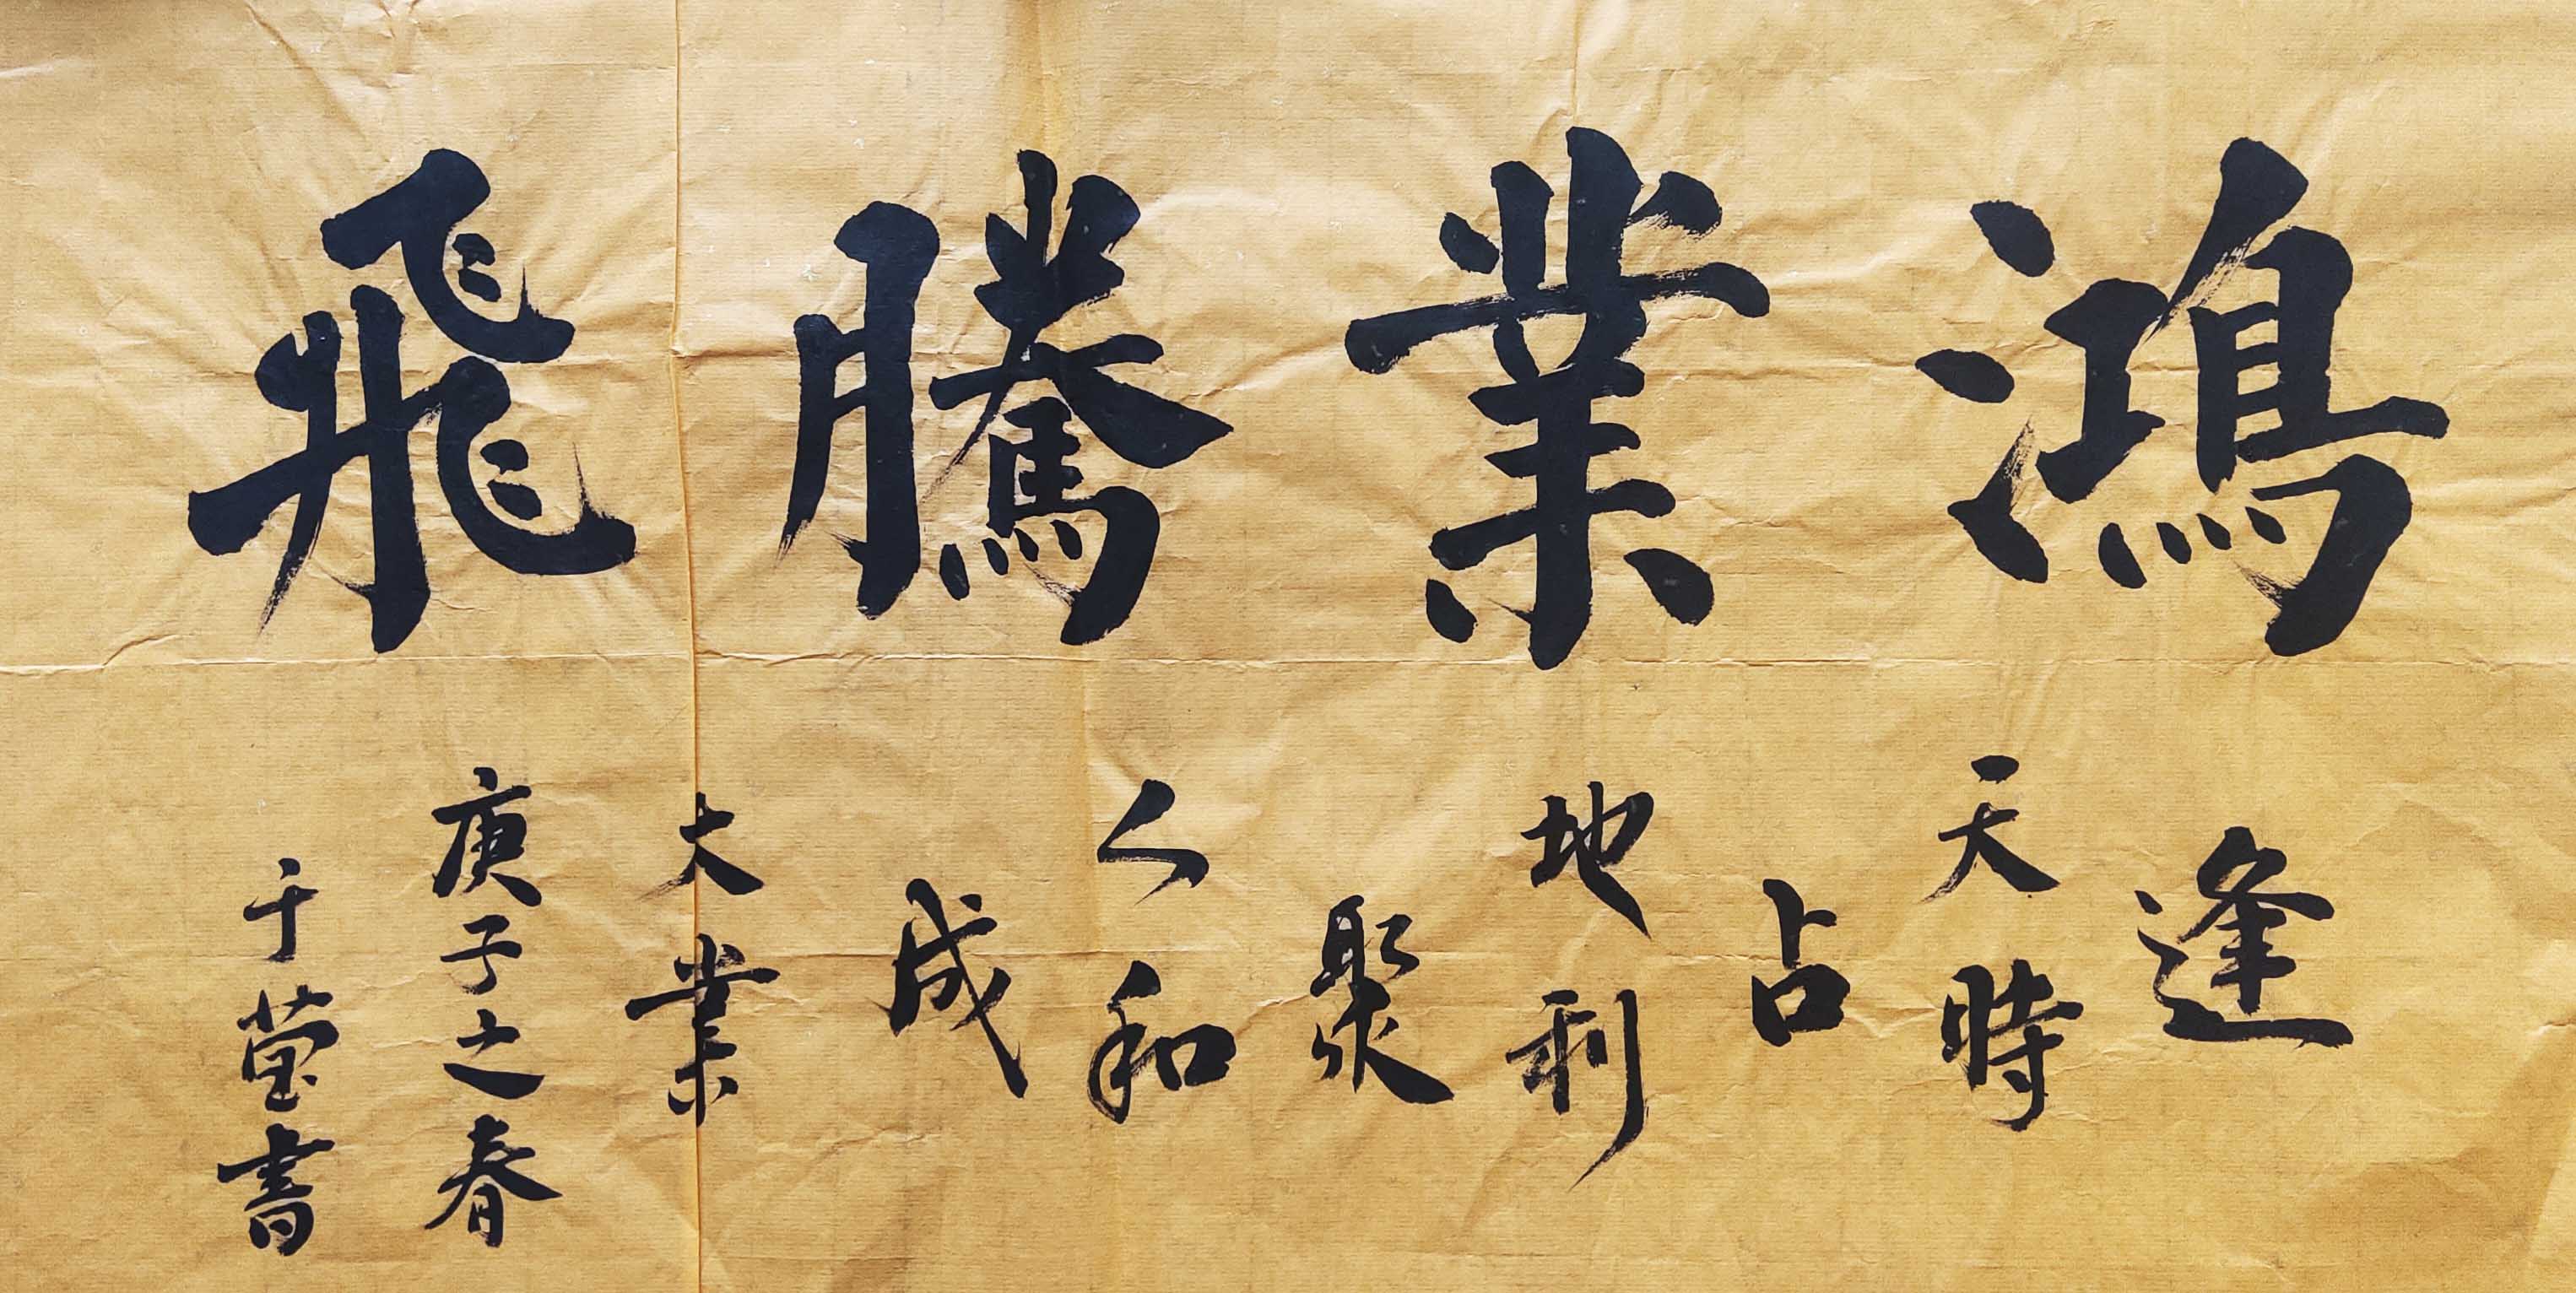 鴻業騰飛
逢
天時
占
地利
聚
人和
成
大業
庚子之春
于莹書